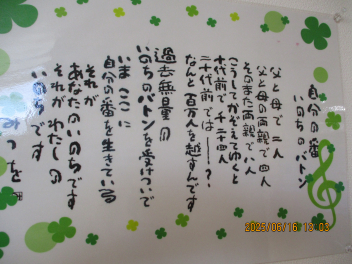 自分の番
いのちのバトン
父と母で二人
父と母の両親で四人
そのまた両親で八人
こうしてかぞえてゆくと
十代前で千二十四人
二十代前では———？
なんと百万人を越すんです
過去無量の
いのちのバトンを受けついで
いまここに
自分の番を生きている
それが
あなたのいのちです
それがわたしの
いのちです
みつを
2025/06/16 13:03